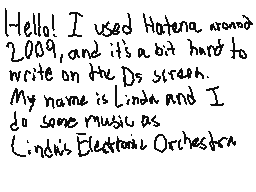 Hello! I used Hatena around
2009, and it's a bit hard to
write on the Ds screen.
My name is Linda and I
do some music as
Linda's Electronic Orchestra